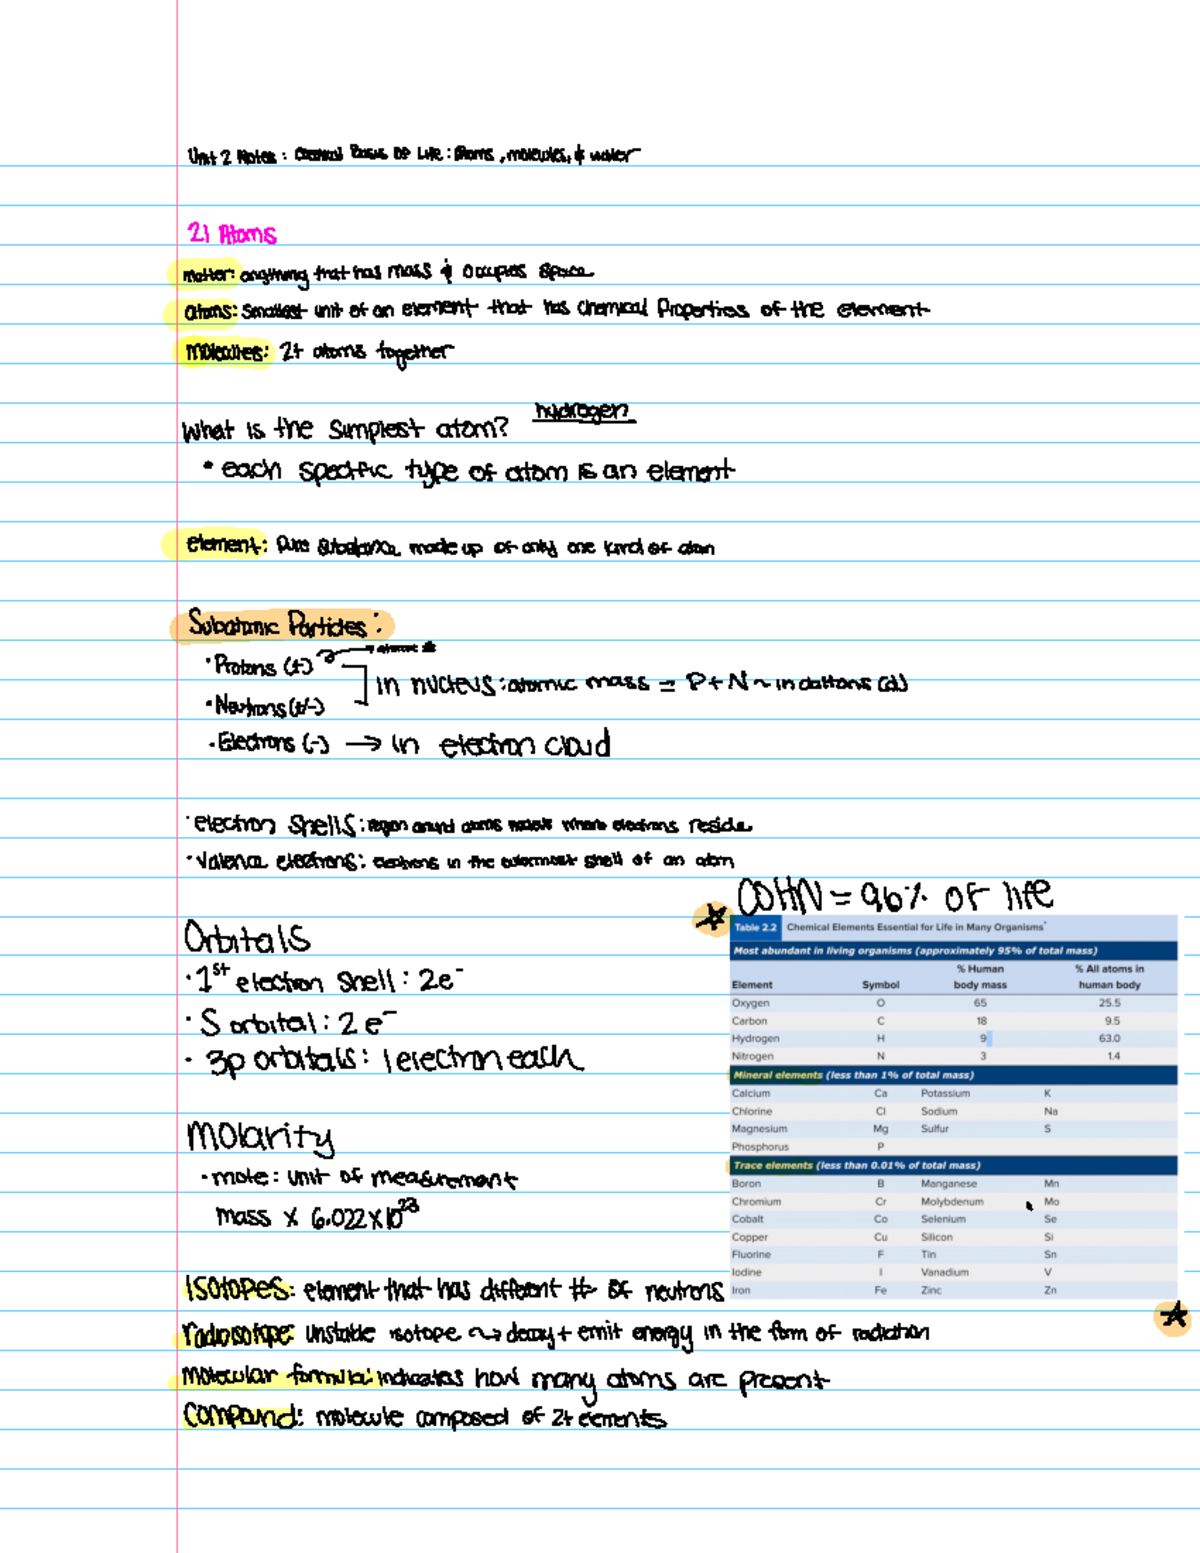 Unit 2 Notes: Chemical Basis Of Life: Atoms, molecules, & water
2.1 Atoms
matter: anything that has mass & occupies space
atoms: Smallest unit of an element that has chemical Properties of the element
molecules: 2+ atoms together
hydrogen
What is the Simplest atom?
• each specific type of atom is an element
element: Pure substance made up of only one kind of atom
Subatomic Particles:
• Protons (+) → atomic #
• Neutrons (+/-)
in nucleus: atomic mass = P + N ~ in daltons (d)
• Electrons (-) → in electron cloud
• electron Shells: region around atoms nucleus where electrons reside
• Valence electrons: electrons in the outermost shell of an atom
COHN = 96% of life
Orbitals
• 1st electron shell: 2e⁻
• S orbital: 2e⁻
• 3p orbitals: 1 electron each
Molarity
• mole: unit of measurement
mass x 6.022x10²³
Table 2.2 Chemical Elements Essential for Life in Many Organisms*
Most abundant in living organisms (approximately 95% of total mass)
Element Symbol % Human body mass % All atoms in human body
Oxygen O 65 25.5
Carbon C 18 9.5
Hydrogen H 9 63.0
Nitrogen N 3 1.4
Mineral elements (less than 1% of total mass)
Calcium Ca Potassium K
Chlorine Cl Sodium Na
Magnesium Mg Sulfur S
Phosphorus P
Trace elements (less than 0.01% of total mass)
Boron B Manganese Mn
Chromium Cr Molybdenum Mo
Cobalt Co Selenium Se
Copper Cu Silicon Si
Fluorine F Tin Sn
Iodine I Vanadium V
Iron Fe Zinc Zn
Isotopes: element that has different # of neutrons
radioisotope: unstable isotope → decay + emit energy in the form of radiation
Molecular formula: indicates how many atoms are present
Compound: molecule composed of 2+ elements